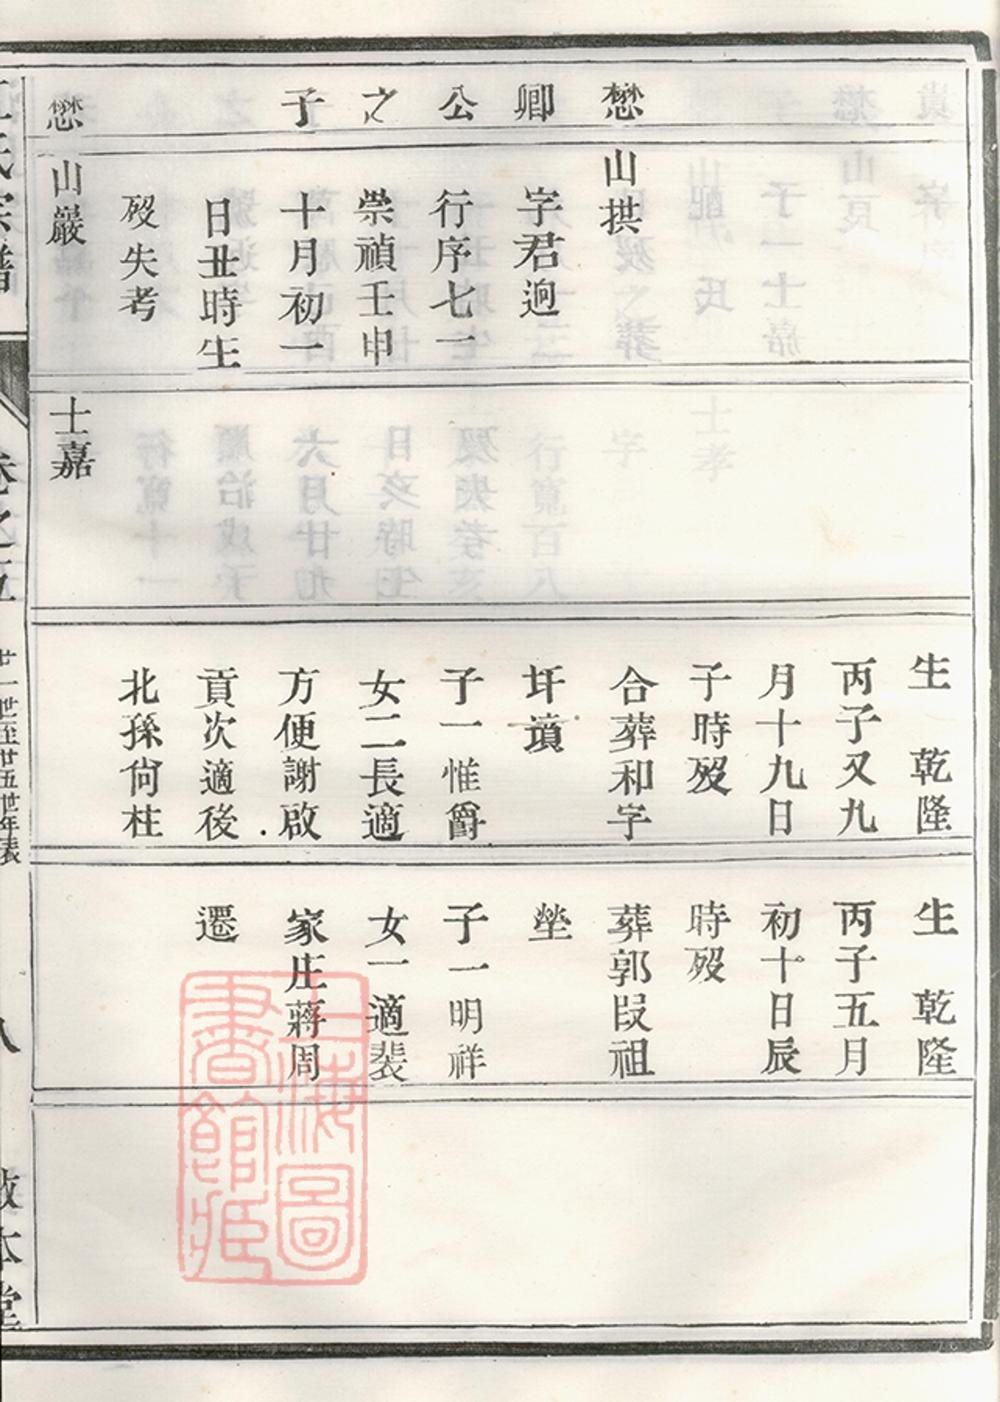 懋卿公之子
懋
山拱
字君逈
行序七一
崇禎壬申
十月初一
日丑時生
歿失考
山巖
士嘉
生 乾隆
丙子又九
月十九日
子時歿
合葬和字
圩墳
子一惟爵
女二長適
方便謝啟
貢次適後
北孫尙柱
生 乾隆
丙子五月
初十日辰
時歿
葬郭叚祖
塋
子一明祥
女一適裴
家庄蔣周
遷
氏宗譜
卷之五
廿一世至廿五世年表
八
敬本堂
上海圖書館藏